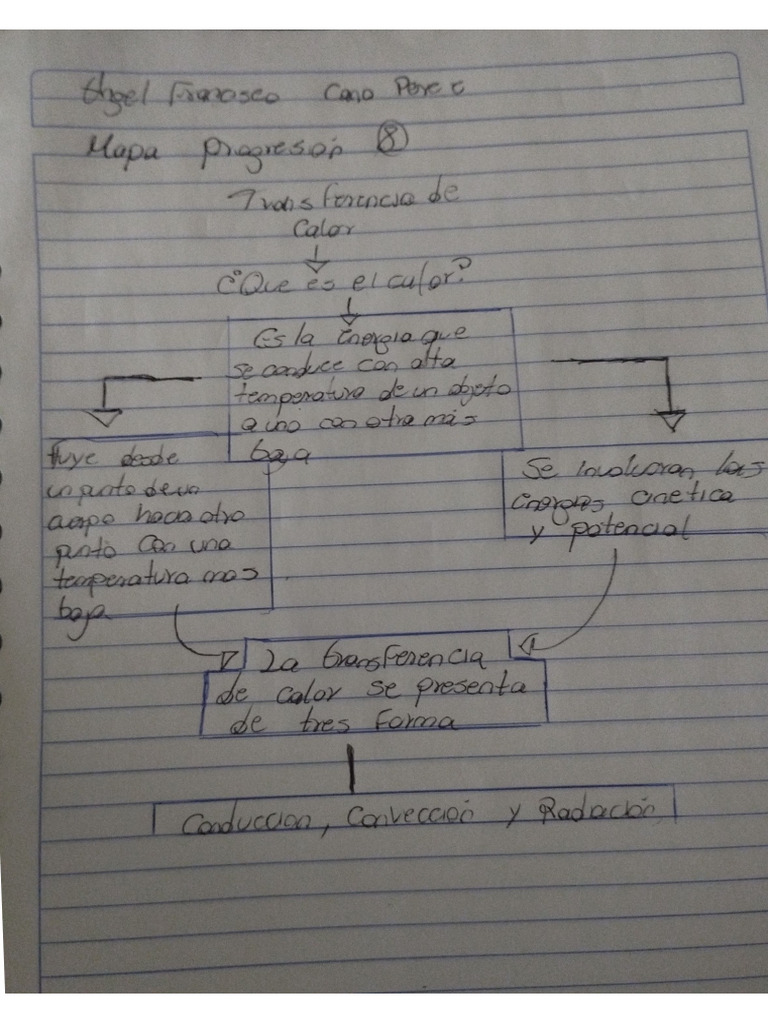 Angel Francisco Cano Perez
Mapa progresión 8
Transferencia de
Calor
¿Que es el calor?
Es la Energia que
se conduce con alta
temperatura de un objeto
a uno con otra más
baja
fluye desde
un punto de un
cuerpo hacia otro
punto con una
temperatura mas
baja
Se involucran las
energias cinetica
y potencial
La transferencia
de calor se presenta
de tres forma
Conduccion, Convección y Radiación